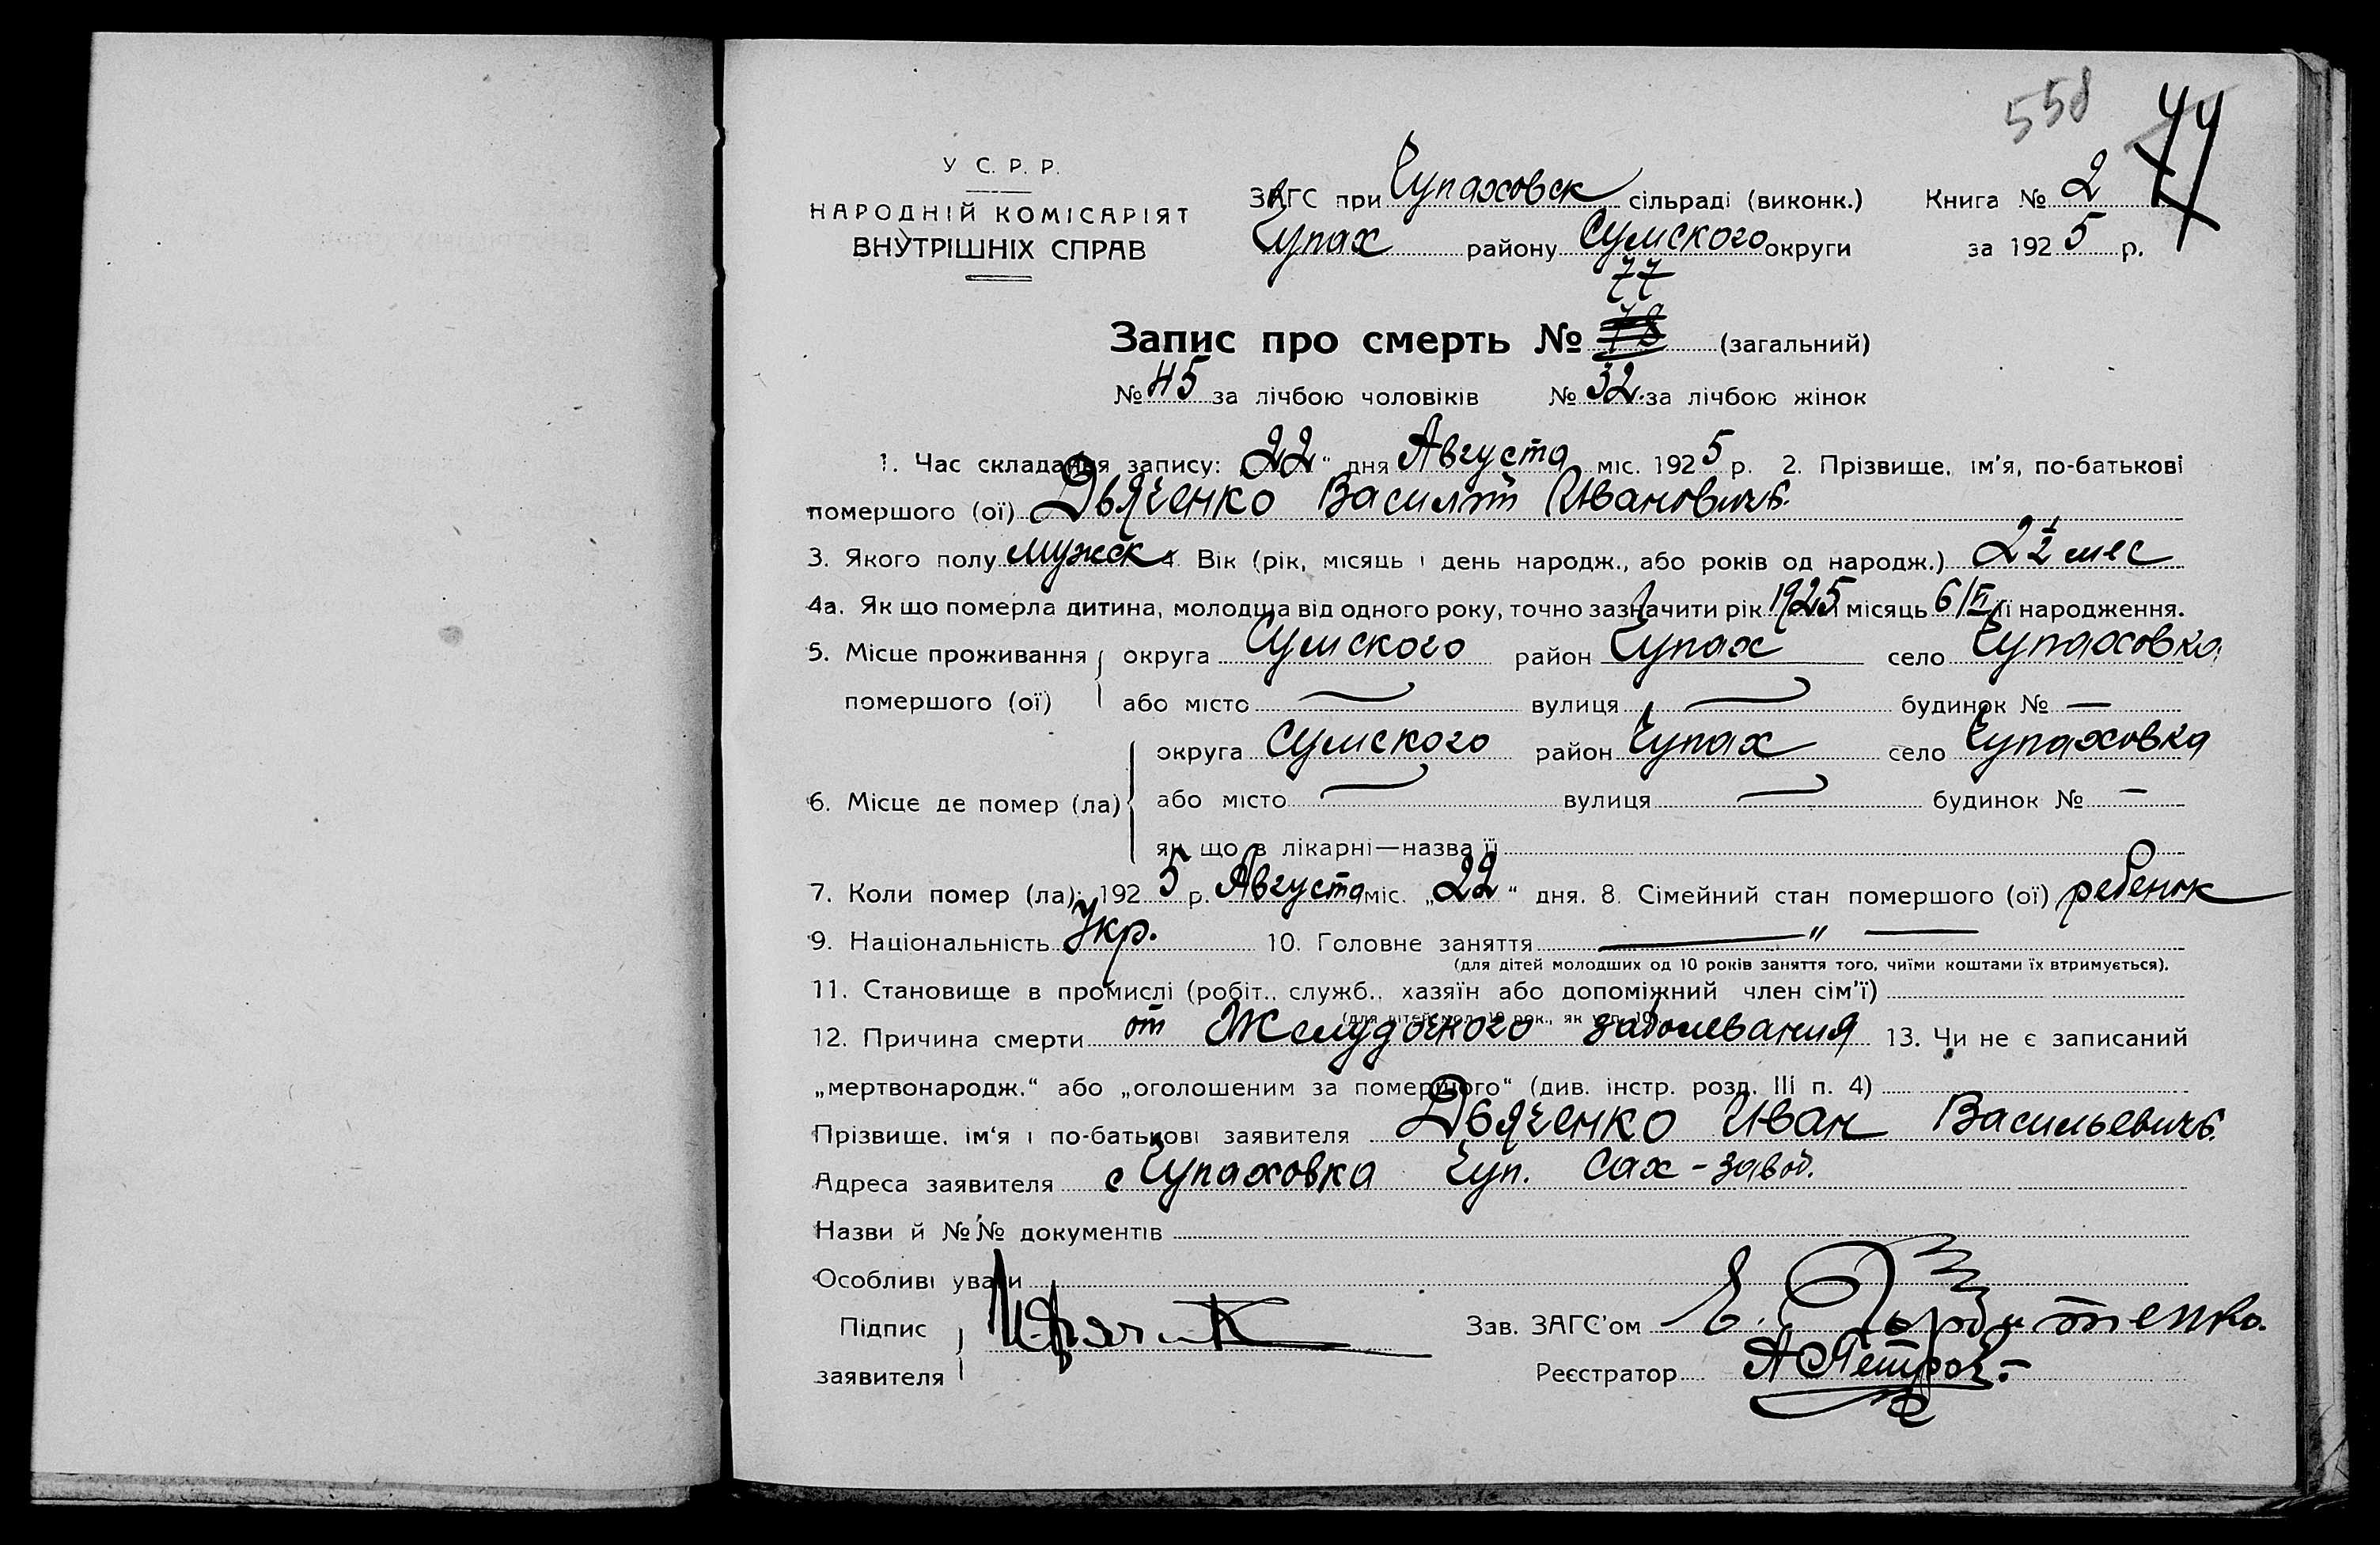 558
44
У С. Р. Р.
НАРОДНІЙ КОМІСАРІЯТ
ВНУТРІШНІХ СПРАВ
ЗАГС при Чупаховск сільраді (виконк.) Книга № 2
Чупах району Сумского округи за 1925 р.
77
Запис про смерть № 78 (загальний)
№ 45 за лічбою чоловіків № 32. за лічбою жінок
1. Час складання запису: „22“ дня Августа міс. 1925 р. 2. Прізвище, ім'я, по-батькові
помершого (ої) Дьяченко Василий Ивановичъ.
3. Якого полу мужск 4. Вік (рік, місяць і день народж., або років од народж.) 2 1/2 мес
4а. Як що померла дитина, молодша від одного року, точно зазначити рік 1925 і місяць 6/VI її народження.
5. Місце проживання округа Сумского район Чупах село Чупаховка
помершого (ої) або місто — вулиця — будинок № —
округа Сумского район Чупах село Чупаховка
6. Місце де помер (ла) або місто — вулиця — будинок № —
як що в лікарні—назва її
7. Коли помер (ла): 1925 р. Августа міс. „22“ дня. 8. Сімейний стан помершого (ої) ребенок
9. Національність Укр. 10. Головне заняття — " —
(для дітей молодших од 10 років заняття того, чиїми коштами їх втримується).
11. Становище в промислі (робіт., служб., хазяїн або допоміжний член сім'ї)
(для дітей мол. 10 рок., як у п. 10)
12. Причина смерти от Желудочного заболевания 13. Чи не є записаний
„мертвонародж.“ або „оголошеним за помершого“ (див. інстр. розд. III п. 4)
Прізвище, ім'я і по-батькові заявителя Дьяченко Иван Васильевичъ.
Адреса заявителя с Чупаховка Чуп. Сах-завод.
Назви й №№ документів
Особливі уваги
Підпис Зав. ЗАГС'ом
заявителя Реєстратор А Петров